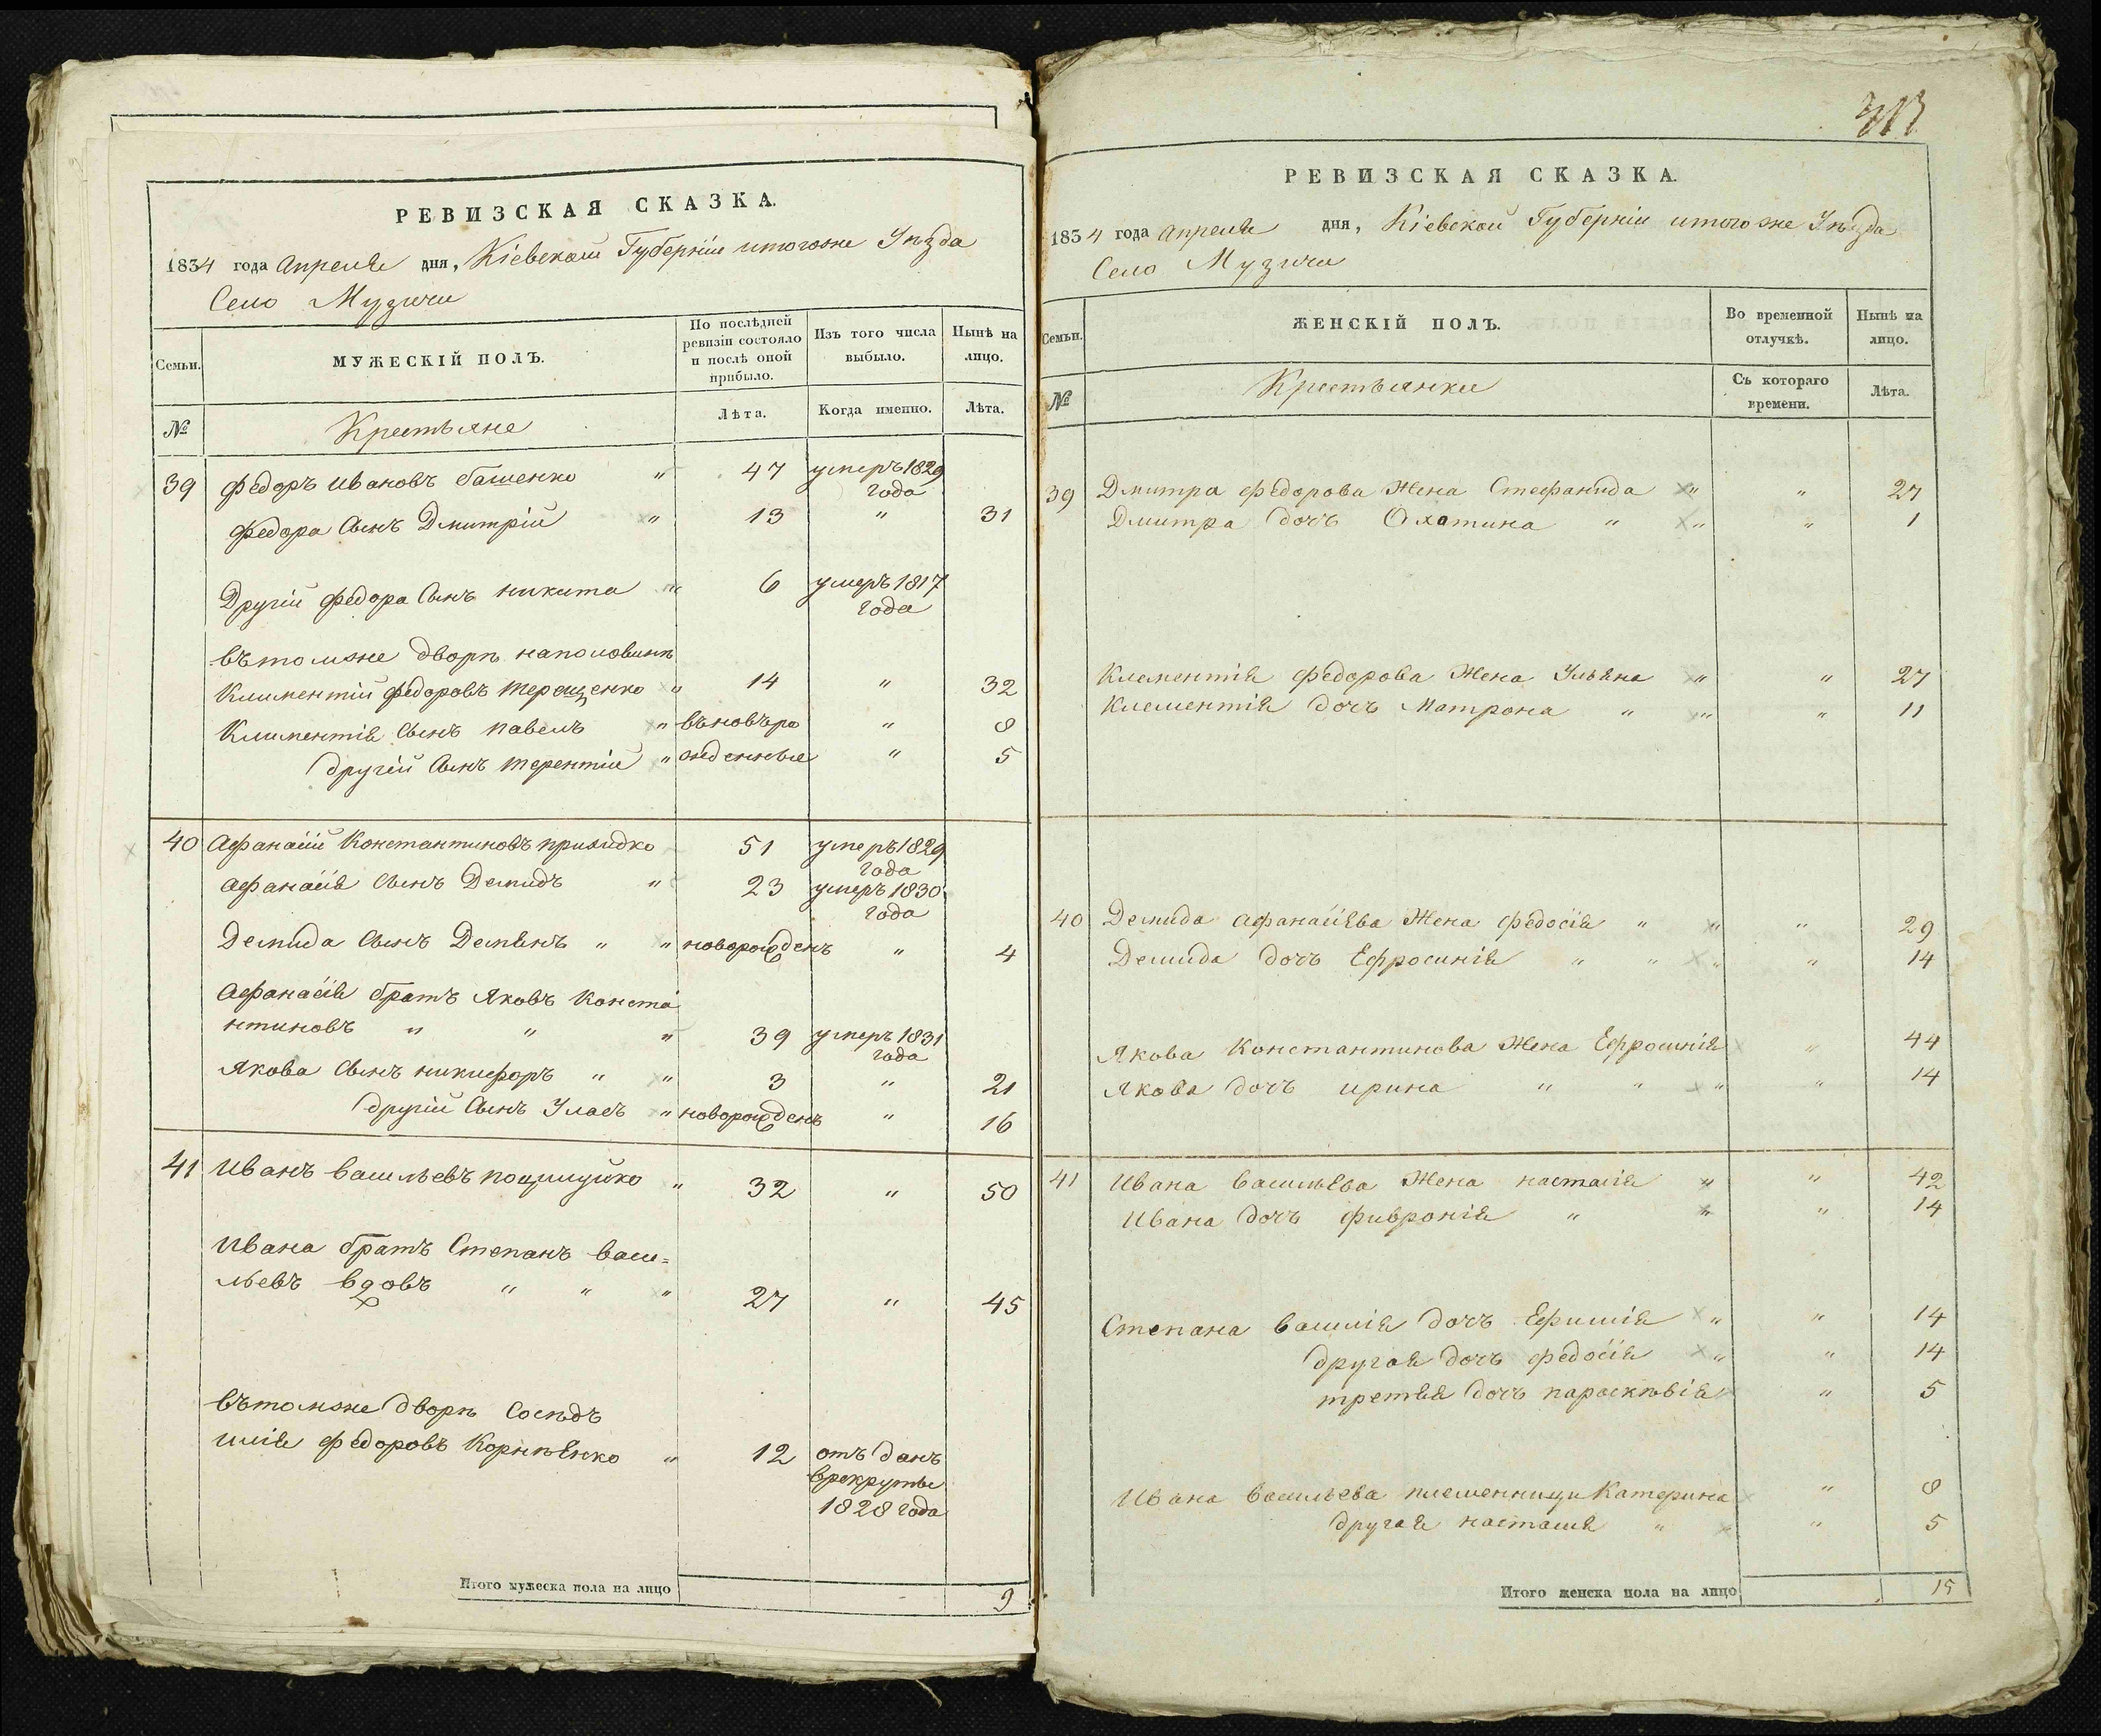 РЕВИЗСКАЯ СКАЗКА.
1834 года Апреля дня, Кіевской Губерніи итогоже Уѣзда
Село Музичи
Семьи. МУЖЕСКІЙ ПОЛЪ. По послѣдней ревизіи состояло и послѣ оной прибыло. Изъ того числа выбыло. Нынѣ на лицо.
№ Крестьяне Лѣта. Когда именно. Лѣта.
39 Федоръ Ивановъ башенко " 47 умеръ 1829
года
Федора Сынъ Дмитрій " 13 " 31
Другій Федора Сынъ никита " 6 умеръ 1817
года
вътомже дворѣ наполовинѣ
Климентій Федоровъ терещенко " 14 " 32
Климентія Сынъ павелъ " вьновьро " 8
другій Сынъ терентій " жденные " 5
40 Афанасій Константиновъ приходко 51 умеръ 1829
года
Афанасія Сынъ Демидъ " 23 умеръ 1830
года
Демида Сынъ Демянъ " " новорожденъ " 4
Афанасія братъ Яковъ Конста
нтиновъ " " " 39 умеръ 1831
года
Якова Сынъ никифоръ " " 3 " 21
другій Сынъ Уласъ " новорожденъ " 16
41 Иванъ васильевъ " 32 " 50
Ивана братъ Степанъ васи=
льевъ вдовъ " " " 27 " 45
вътомже дворѣ Сосѣдъ
илія Федоровъ Корнѣенко " 12 отъданъ
врекруты
1828 года
Итого мужеска пола на лицо 9
313
РЕВИЗСКАЯ СКАЗКА.
1834 года Апреля дня, Кіевской Губерніи итогоже Уѣзда
Село Музичи
Семьи. ЖЕНСКІЙ ПОЛЪ. Во временной отлучкѣ. Нынѣ на лицо.
№ Крестьянки Съ котораго времени. Лѣта.
39 Дмитра Федорова Жена Стефанида " " 27
Дмитра дочь " " " 1
Клементія Федорова Жена Ульяна " " 27
Клементія дочь Матрона " " " 11
40 Демида Афанасіева Жена Федосія " " " 29
Демида дочь Ефросинія " " " " 14
Якова Константинова Жена Ефросинія " 44
Якова дочь ирина " " " " 14
41 Ивана васильева Жена настасія " " 42
Ивана дочь фивронія " " " 14
Степана василія дочь Ефимія " " 14
другая дочь федосія " " 14
третья дочь параскѣвія " 5
Ивана васильева племенници Катерина " 8
другая настасия " " " 5
Итого женска пола на лицо 15